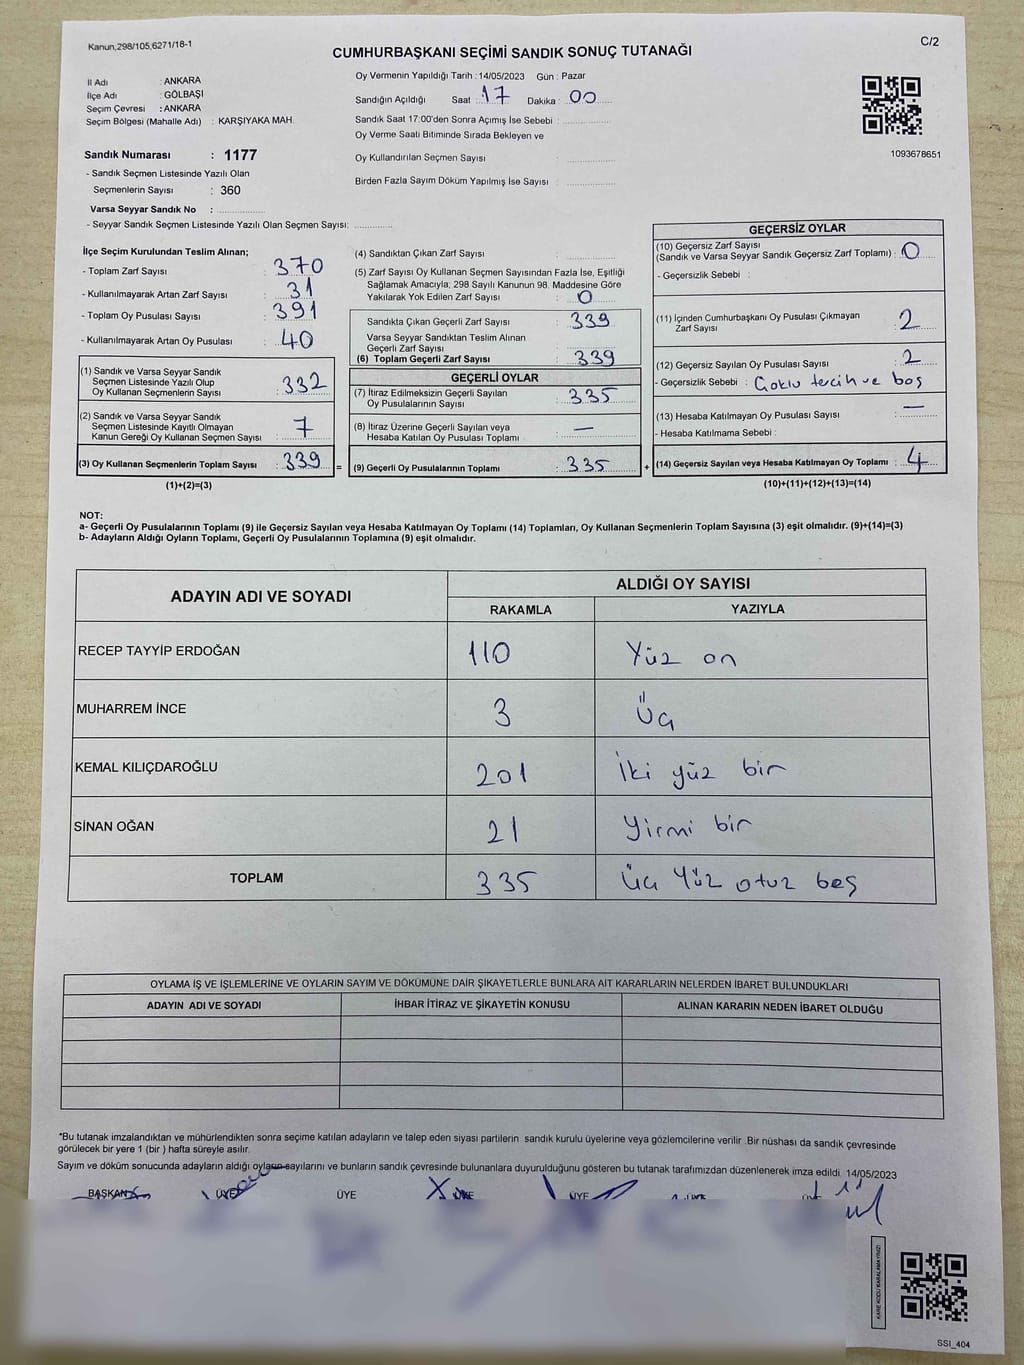 Kanun,298/105,6271/18-1
C/2
CUMHURBAŞKANI SEÇİMİ SANDIK SONUÇ TUTANAĞI
İl Adı : ANKARA
İlçe Adı : GÖLBAŞI
Seçim Çevresi : ANKARA
Seçim Bölgesi (Mahalle Adı) : KARŞIYAKA MAH.
Sandık Numarası : 1177
- Sandık Seçmen Listesinde Yazılı Olan
Seçmenlerin Sayısı : 360
Varsa Seyyar Sandık No :
- Seyyar Sandık Seçmen Listesinde Yazılı Olan Seçmen Sayısı:
Oy Vermenin Yapıldığı Tarih : 14/05/2023 Gün : Pazar
Sandığın Açıldığı Saat : 17 Dakika : 00
Sandık Saat 17:00'den Sonra Açımış İse Sebebi :
Oy Verme Saati Bitiminde Sırada Bekleyen ve
Oy Kullandırılan Seçmen Sayısı :
Birden Fazla Sayım Döküm Yapılmış İse Sayısı :
1093678651
İlçe Seçim Kurulundan Teslim Alınan;
- Toplam Zarf Sayısı : 370
- Kullanılmayarak Artan Zarf Sayısı : 31
- Toplam Oy Pusulası Sayısı : 391
- Kullanılmayarak Artan Oy Pusulası : 40
(1) Sandık ve Varsa Seyyar Sandık
Seçmen Listesinde Yazılı Olup
Oy Kullanan Seçmenlerin Sayısı : 332
(2) Sandık ve Varsa Seyyar Sandık
Seçmen Listesinde Kayıtlı Olmayan
Kanun Gereği Oy Kullanan Seçmen Sayısı : 7
(3) Oy Kullanan Seçmenlerin Toplam Sayısı : 339 =
(1)+(2)=(3)
(4) Sandıktan Çıkan Zarf Sayısı :
(5) Zarf Sayısı Oy Kullanan Seçmen Sayısından Fazla İse, Eşitliği
Sağlamak Amacıyla; 298 Sayılı Kanunun 98. Maddesine Göre
Yakılarak Yok Edilen Zarf Sayısı : 0
Sandıkta Çıkan Geçerli Zarf Sayısı : 339
Varsa Seyyar Sandıktan Teslim Alınan
Geçerli Zarf Sayısı :
(6) Toplam Geçerli Zarf Sayısı : 339
GEÇERLİ OYLAR
(7) İtiraz Edilmeksizin Geçerli Sayılan
Oy Pusulalarının Sayısı : 335
(8) İtiraz Üzerine Geçerli Sayılan veya
Hesaba Katılan Oy Pusulası Toplamı : —
(9) Geçerli Oy Pusulalarının Toplamı : 335 +
GEÇERSİZ OYLAR
(10) Geçersiz Zarf Sayısı
(Sandık ve Varsa Seyyar Sandık Geçersiz Zarf Toplamı) : 0
- Geçersizlik Sebebi :
(11) İçinden Cumhurbaşkanı Oy Pusulası Çıkmayan
Zarf Sayısı : 2
(12) Geçersiz Sayılan Oy Pusulası Sayısı : 2
- Geçersizlik Sebebi : Çoklu tercih ve boş
(13) Hesaba Katılmayan Oy Pusulası Sayısı : —
- Hesaba Katılmama Sebebi :
(14) Geçersiz Sayılan veya Hesaba Katılmayan Oy Toplamı : 4
(10)+(11)+(12)+(13)=(14)
NOT:
a- Geçerli Oy Pusulalarının Toplamı (9) ile Geçersiz Sayılan veya Hesaba Katılmayan Oy Toplamı (14) Toplamları, Oy Kullanan Seçmenlerin Toplam Sayısına (3) eşit olmalıdır. (9)+(14)=(3)
b- Adayların Aldığı Oyların Toplamı, Geçerli Oy Pusulalarının Toplamına (9) eşit olmalıdır.
ADAYIN ADI VE SOYADI
ALDIĞI OY SAYISI
RAKAMLA YAZIYLA
RECEP TAYYİP ERDOĞAN 110 Yüz on
MUHARREM İNCE 3 Üç
KEMAL KILIÇDAROĞLU 201 İki yüz bir
SİNAN OĞAN 21 Yirmi bir
TOPLAM 335 Üç Yüz otuz beş
OYLAMA İŞ VE İŞLEMLERİNE VE OYLARIN SAYIM VE DÖKÜMÜNE DAİR ŞİKAYETLERLE BUNLARA AİT KARARLARIN NELERDEN İBARET BULUNDUKLARI
ADAYIN ADI VE SOYADI İHBAR İTİRAZ VE ŞİKAYETİN KONUSU ALINAN KARARIN NEDEN İBARET OLDUĞU
*Bu tutanak imzalandıktan ve mühürlendikten sonra seçime katılan adayların ve talep eden siyasi partilerin sandık kurulu üyelerine veya gözlemcilerine verilir .Bir nüshası da sandık çevresinde
görülecek bir yere 1 (bir ) hafta süreyle asılır.
Sayım ve döküm sonucunda adayların aldığı oyların sayılarını ve bunların sandık çevresinde bulunanlara duyurulduğunu gösteren bu tutanak tarafımızdan düzenlenerek imza edildi. 14/05/2023
BAŞKAN ÜYE ÜYE ÜYE ÜYE ÜYE ÜYE
KARE KODU KARALAMAYINIZ!
SSI_404